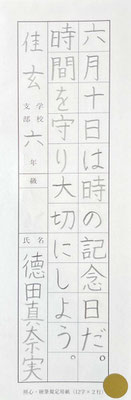 六月十日は時の記念日だ。
時間を守り大切にしよう。
佳玄 学校 支部 六 年 級
氏名 徳田真奈実
初心・硬筆規定用紙(12字×2行)